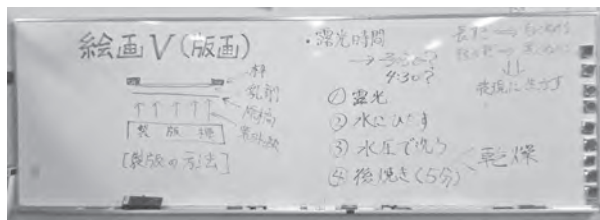 絵画Ⅴ(版画)
枠
乳剤
原稿
紫外線
製版機
[製版の方法]
・露光時間
→3:30〜?
4:30?
① 露光
② 水にひたす
③ 水圧で洗う
④ 後焼き(5分)
乾燥
表現に生かす